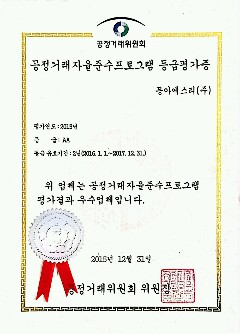 공정거래위원회
공정거래자율준수프로그램 등급평가증
동아에스티(주)
평가연도 : 2015년
등 급 : AA
등급 유효기간 : 2년(2016. 1. 1.~2017. 12. 31.)
위 업체는 공정거래자율준수프로그램
평가결과 우수업체입니다.
2015년 12월 31일
공정거래위원회 위원장